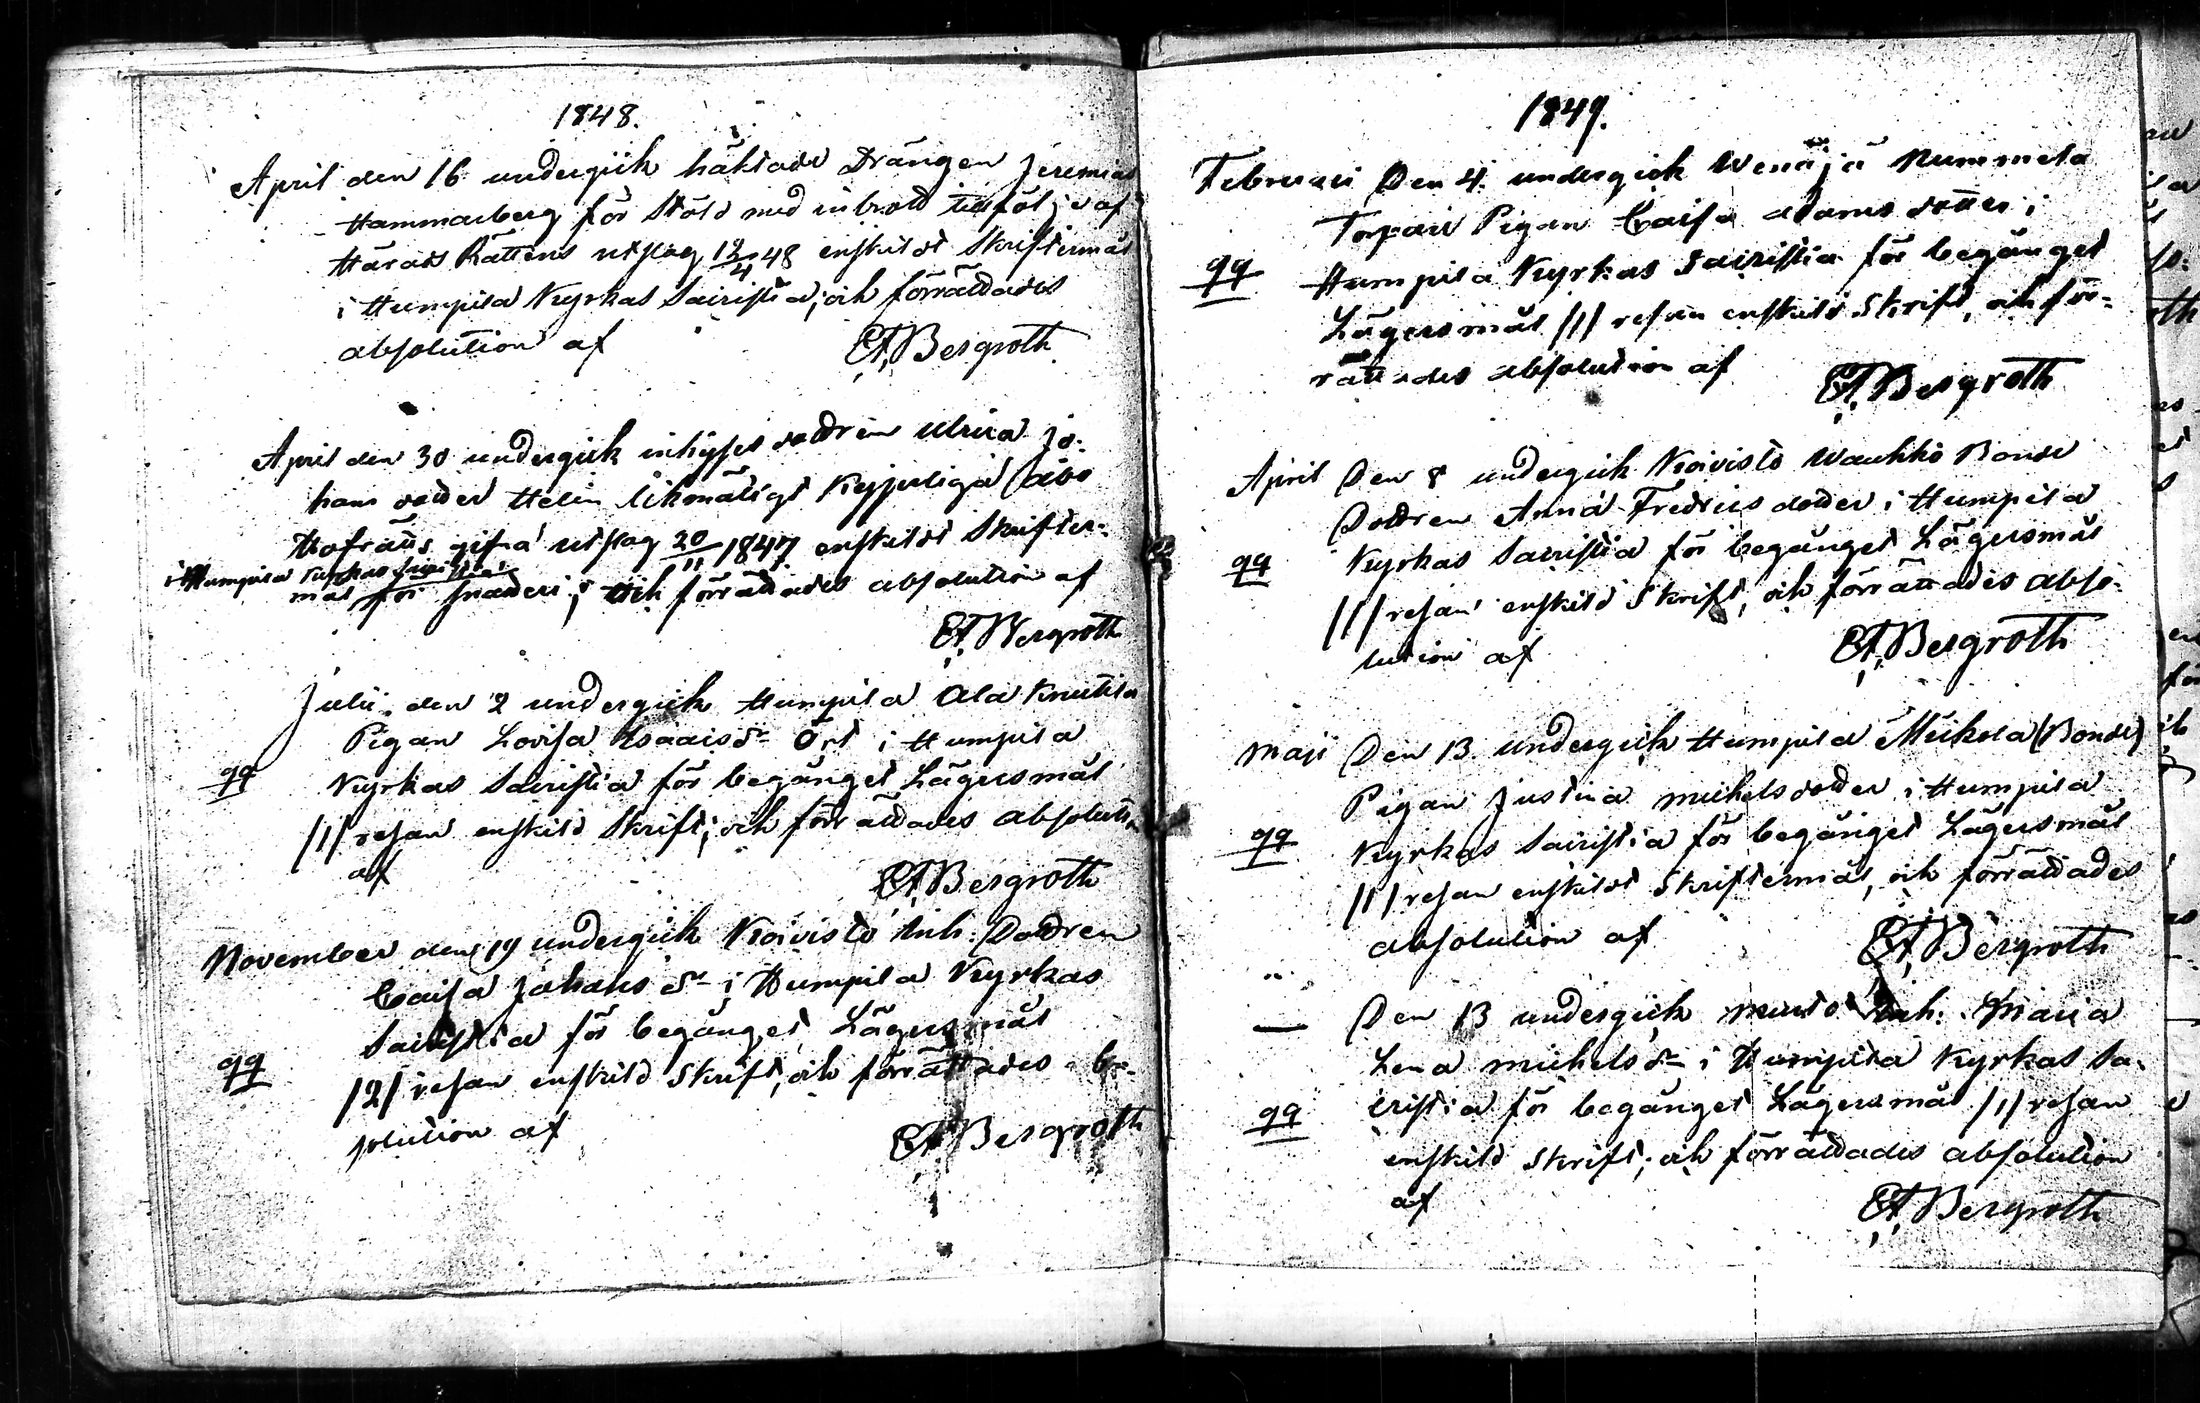 1848.
April den 16 undergick häktade Drängen Jeremias
Hammarberg för Stöld med inbrott tillfölje af
Härads Rättens utslag 12/4 48 enskildt Skriftermål
i Humpila Kyrkas Sacristia; och förrättades
absolution af
EA Bergroth
April den 30 undergick inhyses dottren Ulrica Jo-
hans dotter Helin likmätigt Kejserliga Åbo
Hofrätts gifna utslag 20/11 1847 enskildt Skrifter-
i Humpila Kyrkas Sacristia
mål för ; och förrättades absolution af
EA Bergroth
Julii den 2 undergick Humpila Ala Knuutila
Pigan Lovisa Isaacsdr Öst i Humpila
qq
Kyrkas Sacristia för begånget Lägersmål
/1/ resan enskild Skrift; och förrättades absolution
af
EA Bergroth
November den 19 undergick Koivisto Inh. Dottren
Caisa Johansdr i Humpila Kyrkas
Sacristia för begånget Lägersmål
qq
/2/ resan enskild Skrift, och förrättades ab-
solution af
EA Bergroth
1849.
Februari Den 4. undergick Wenäjä Nummela
Torpare Pigan Caisa Adams dotter i
qq
Humpila Kyrkas Sacristia för begånget
Lägersmål /1/ resan enskild Skrift, och för-
rättades absolution af
EA Bergroth
April Den 8 undergick Koivisto Waukko Bonde
Dottren Anna Fredrics dotter i Humpila
qq
Kyrkas Sacristia för begånget Lägersmål
/1/ resan enskild Skrift, och förrättades abso-
lution af
EA Bergroth
Maji Den 13 undergick Humpila Meikola (Bonde)
Pigan Justina Michels dotter i Humpila
qq
Kyrkas Sacristia för begånget Lägersmål
/1/ resan enskildt Skriftermål, och förrättades
absolution af
EA Bergroth
— Den 13 undergick Inh. Maria
Lena Michelsdr i Humpila Kyrkas Sa-
qq
cristia för begånget Lägersmål /1/ resan
enskild Skrift; och förrättades absolution
af
EA Bergroth